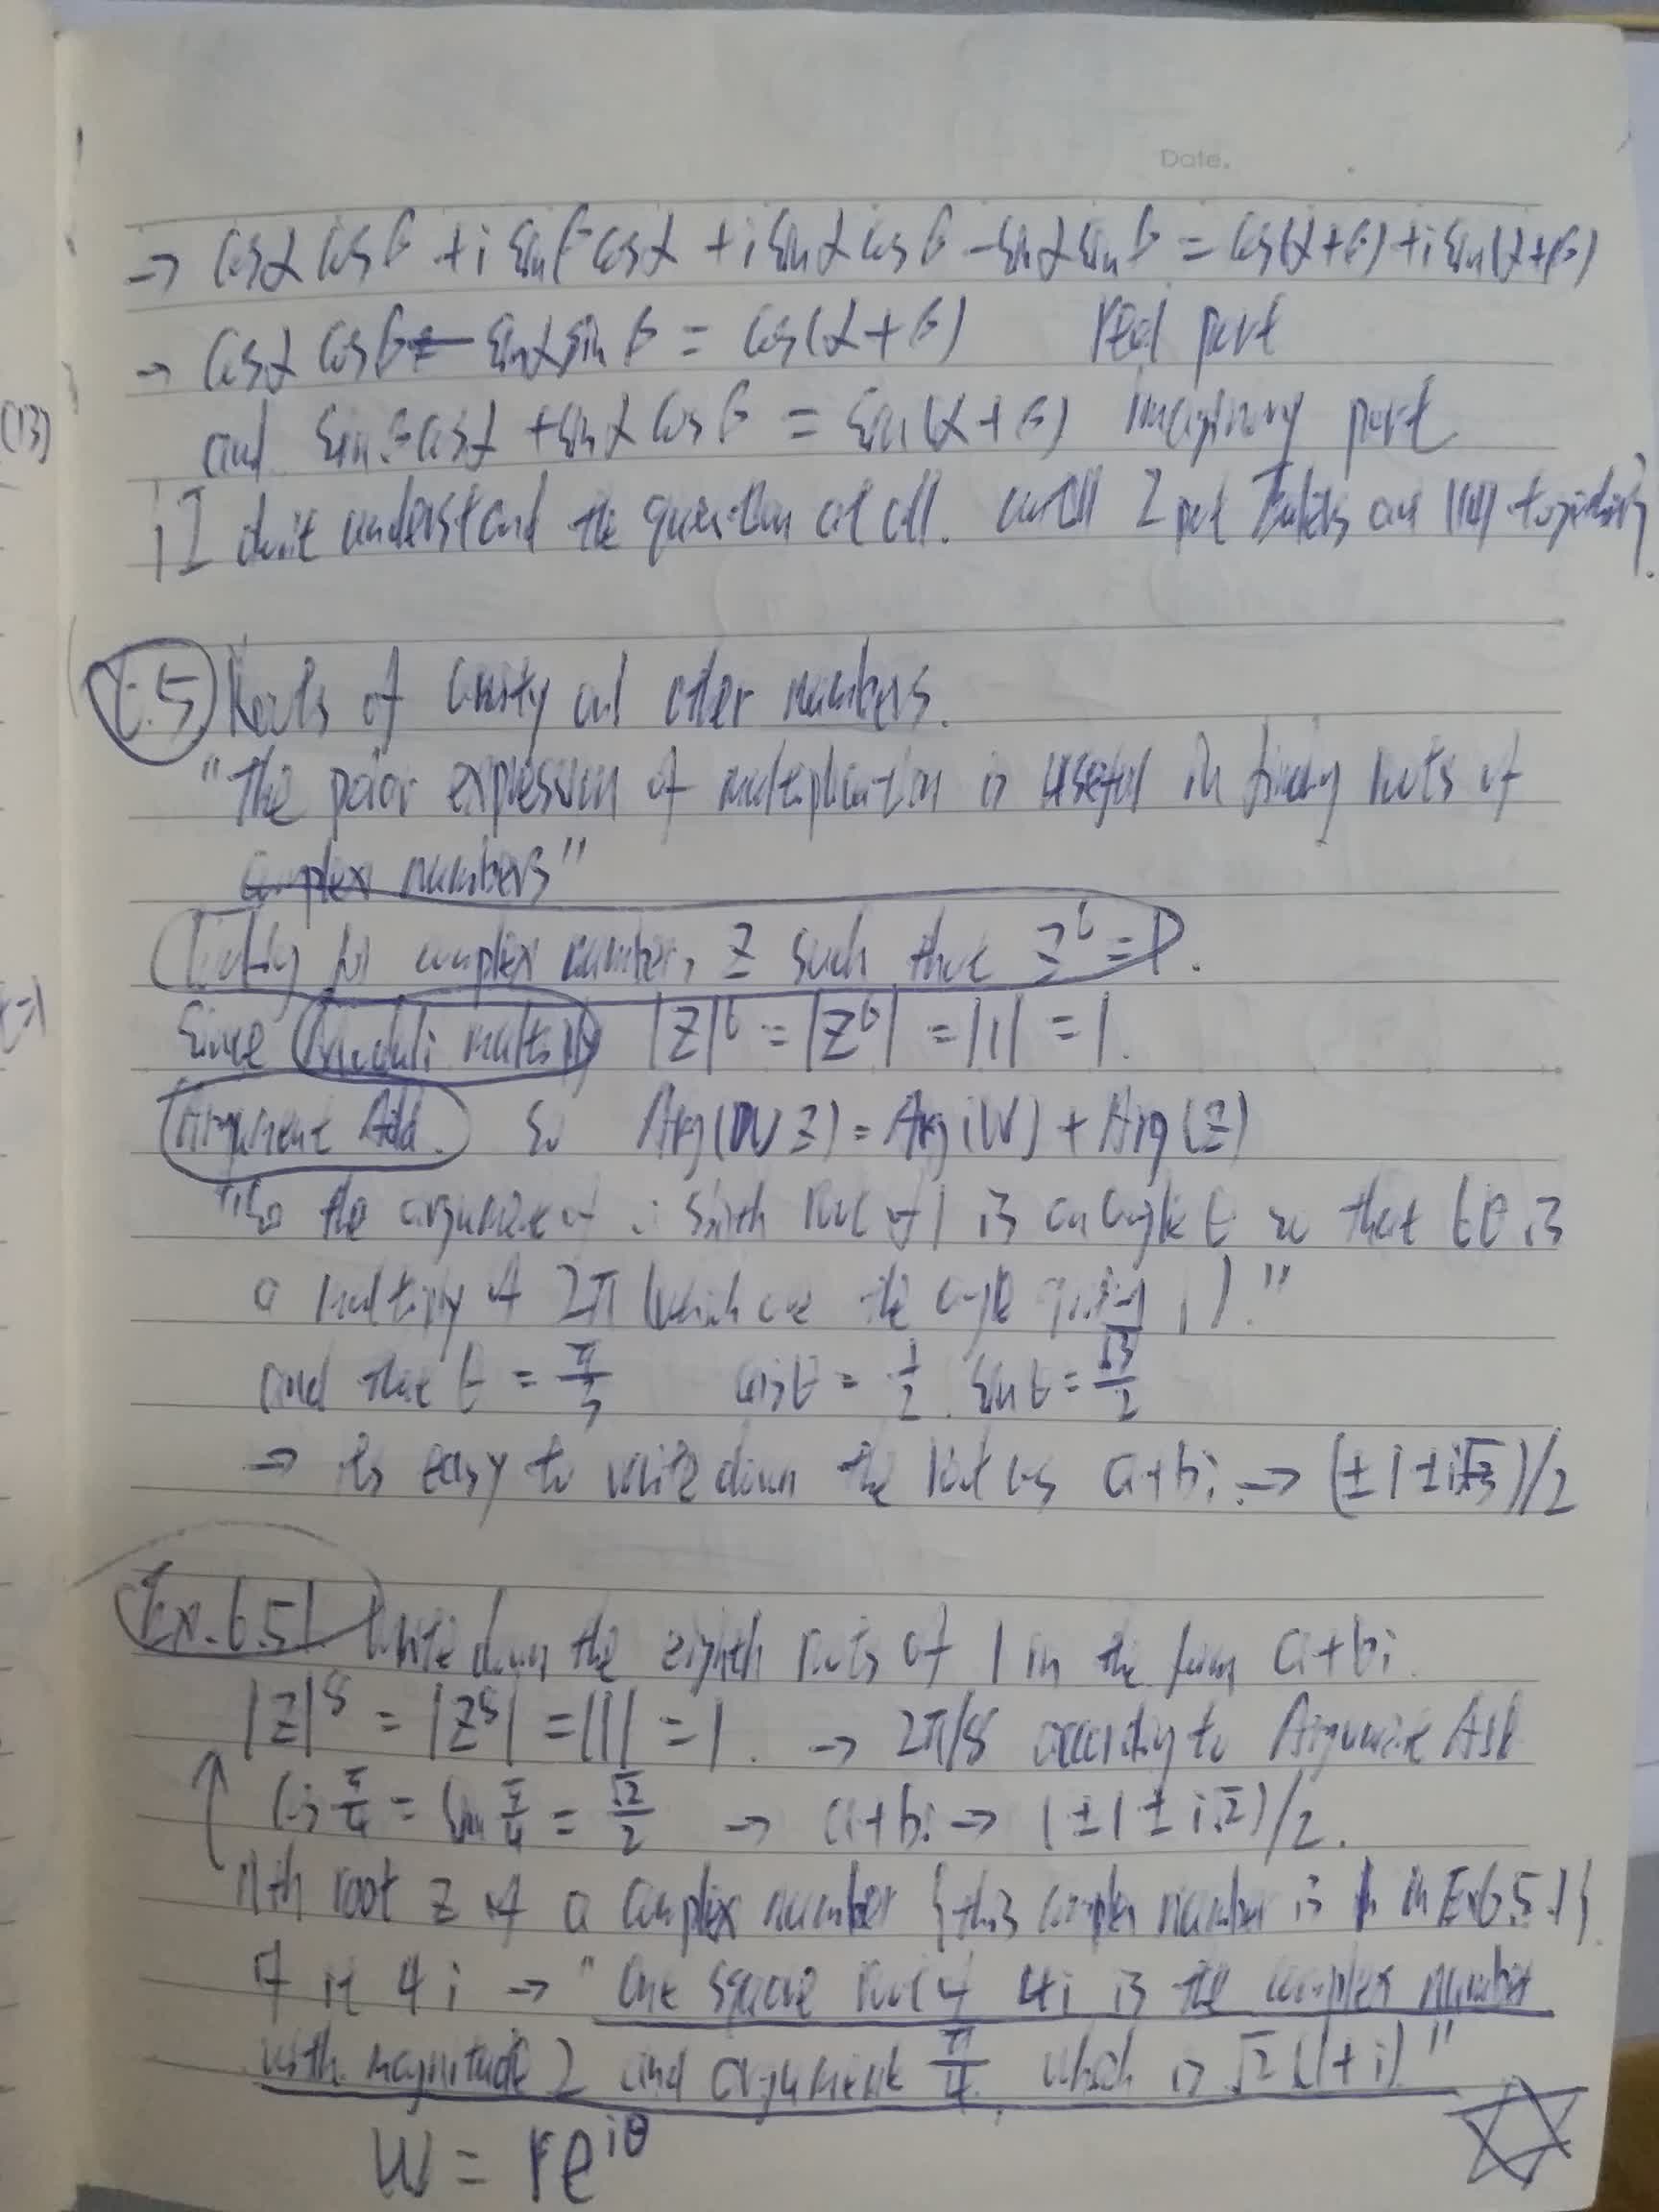 Date.
→ cosα cosβ + i sinβ cosα + i sinα cosβ - sinα sinβ = cos(α+β) + i sin(α+β)
→ cosα cosβ - sinα sinβ = cos(α+β) real part
and sinβ cosα + sinα cosβ = sin(α+β) imaginary part
I don't understand the question at all. until I put Euler's and together
(13)
6.5 Roots of unity and other numbers.
"The polar expression of multiplication is useful in finding roots of
complex numbers"
for complex number, z such that z^6 = 1.
Since moduli multiply |z|^6 = |z^6| = |1| = 1.
t=1
Argument Add. So Arg(WZ) = Arg(W) + Arg(Z)
"So the argument of a sixth root of 1 is an angle θ so that 6θ is
a multiply of 2π (which are the angle giving 1)."
and that θ = π/3 cosθ = 1/2 . sinθ = √3/2
→ its easy to write down the root as a+bi → (±1±i√3)/2
Ex.6.51 Write down the eighth roots of 1 in the form a+bi.
|Z|^8 = |Z^8| = |1| = 1. → 2π/8 according to Argument Add
cos π/4 = sin π/4 = √2/2 → a+bi → (±1±i√2)/2.
nth root z of a complex number {this complex number is 1 in Ex6.5.1}.
If it 4i → "One square root of 4i is the complex number
with magnitude 2 and argument π/4, which is √2(1+i)"
W = re^{iθ}